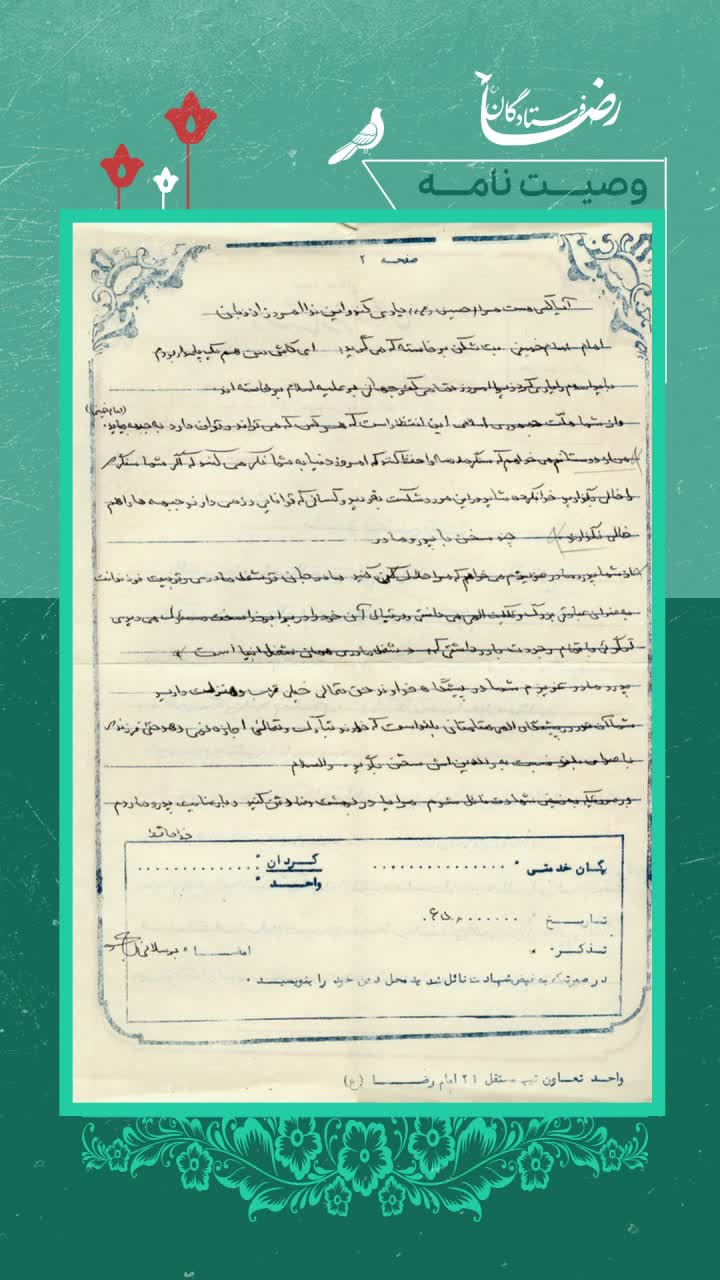 فرستادگان رضا
وصیت نامه
صفحه ۲
آیا کسی هست مرا (حسین (ع)) یاری کند و این ندا امروز از زبان
امام امام خمینی بت شکن برخاسته که می گوید: ای کاش من هم یک پاسدار بودم
باید اسلام را یاری کرد زیرا امروز تمامی کفر جهانی بر علیه اسلام برخاسته اند.
و از شما ملت جمهوری اسلامی این انتظار است که هر کس که می تواند و توان دارد به جبهه بیاید. (امام خمینی)
و از دوستانم می خواهم که سنگر مدرسه را حفظ کنند که امروز دنیا به شما فکر می کند که اگر شما سنگر
را خالی بگذارید خدای نکرده شاید در این مورد شکست بخورید و کسانی که توانایی رزمی دارند جبهه ها را هم
خالی نگذارند چند سخن با پدر و مادر
از شما پدر و مادر عزیزم می خواهم که مرا حلال کنید مادر جان تو شغل مادری و تربیت فرزندانت
به عنوان عبادتی بزرگ و تکلیف الهی می دانستی و در قبال آن خود را در برابر خدا سخت مسئول می دیدی
تو گوئی با تمام وجودت باور داشتی که شغل مادری همان شغل انبیا است
پدر و مادر عزیزم شما در پیشگاه خداوند حق تعالی خیلی قرب و منزلت دارید
شما که در پیشگاه الهی مقامتان بلند است که خداوند تبارک و تعالی اجازه نمی دهد حتی فرزندی
با صدای بلند نسبت به والدین اش سخن بگوید. والسلام
در صورتیکه به فیض شهادت نائل شدم مرا در بهشت رضا دفن کنید دیگر عنایت پدر و مادرم
خداحافظ
یگان خدمتی : گردان :
واحد :
تاریخ
تذکر : امضاء
در صورتیکه به فیض شهادت نائل شدید محل دفن خود را بنویسید .
واحد تعاون تیپ مستقل ۲۱ امام رضا (ع)